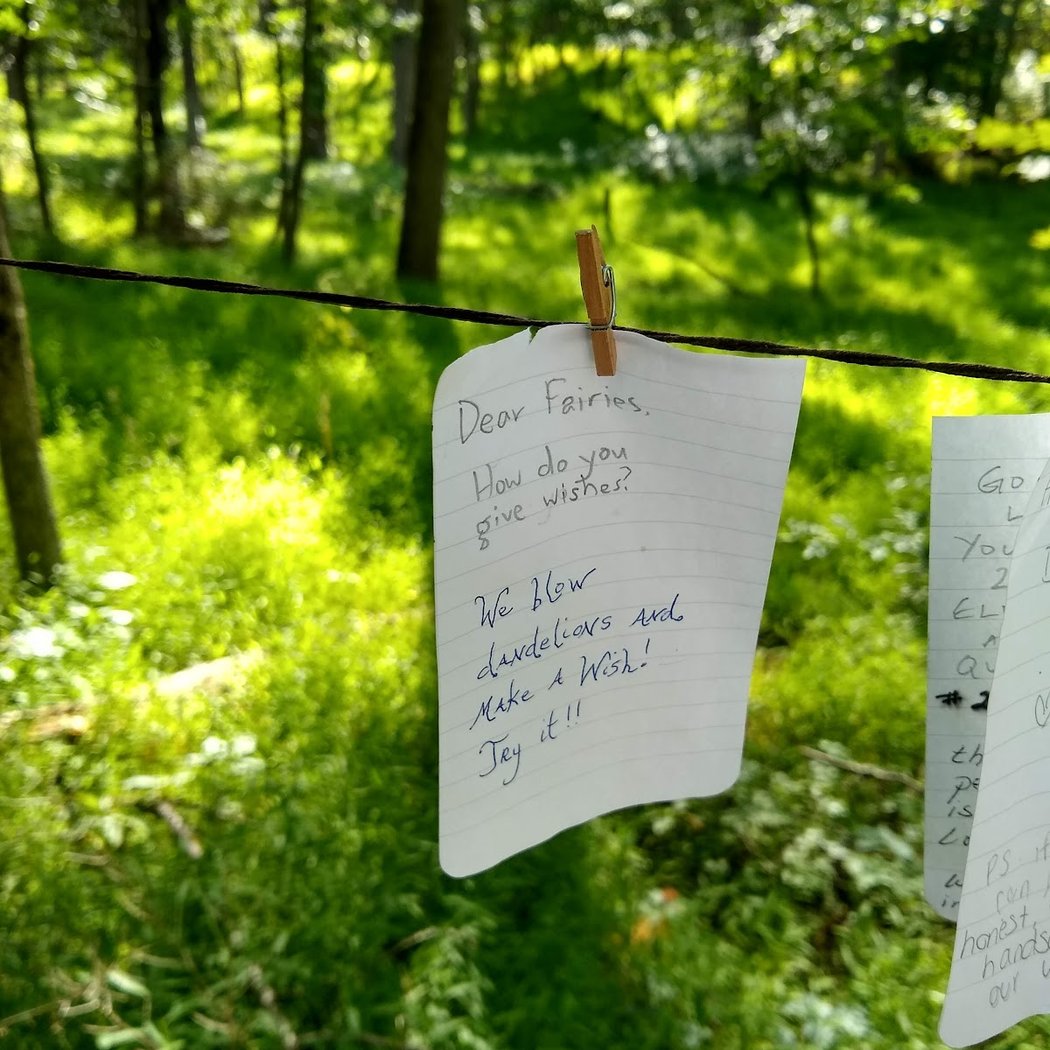 Dear Fairies,
How do you
give wishes?
We blow
dANdelions ANd
MAke A Wish!
Try it!!
GO
L
YOU
2
EL
QU
#2
th
pe
is
Lo
w
in
PS if
can
honest,
hands
our